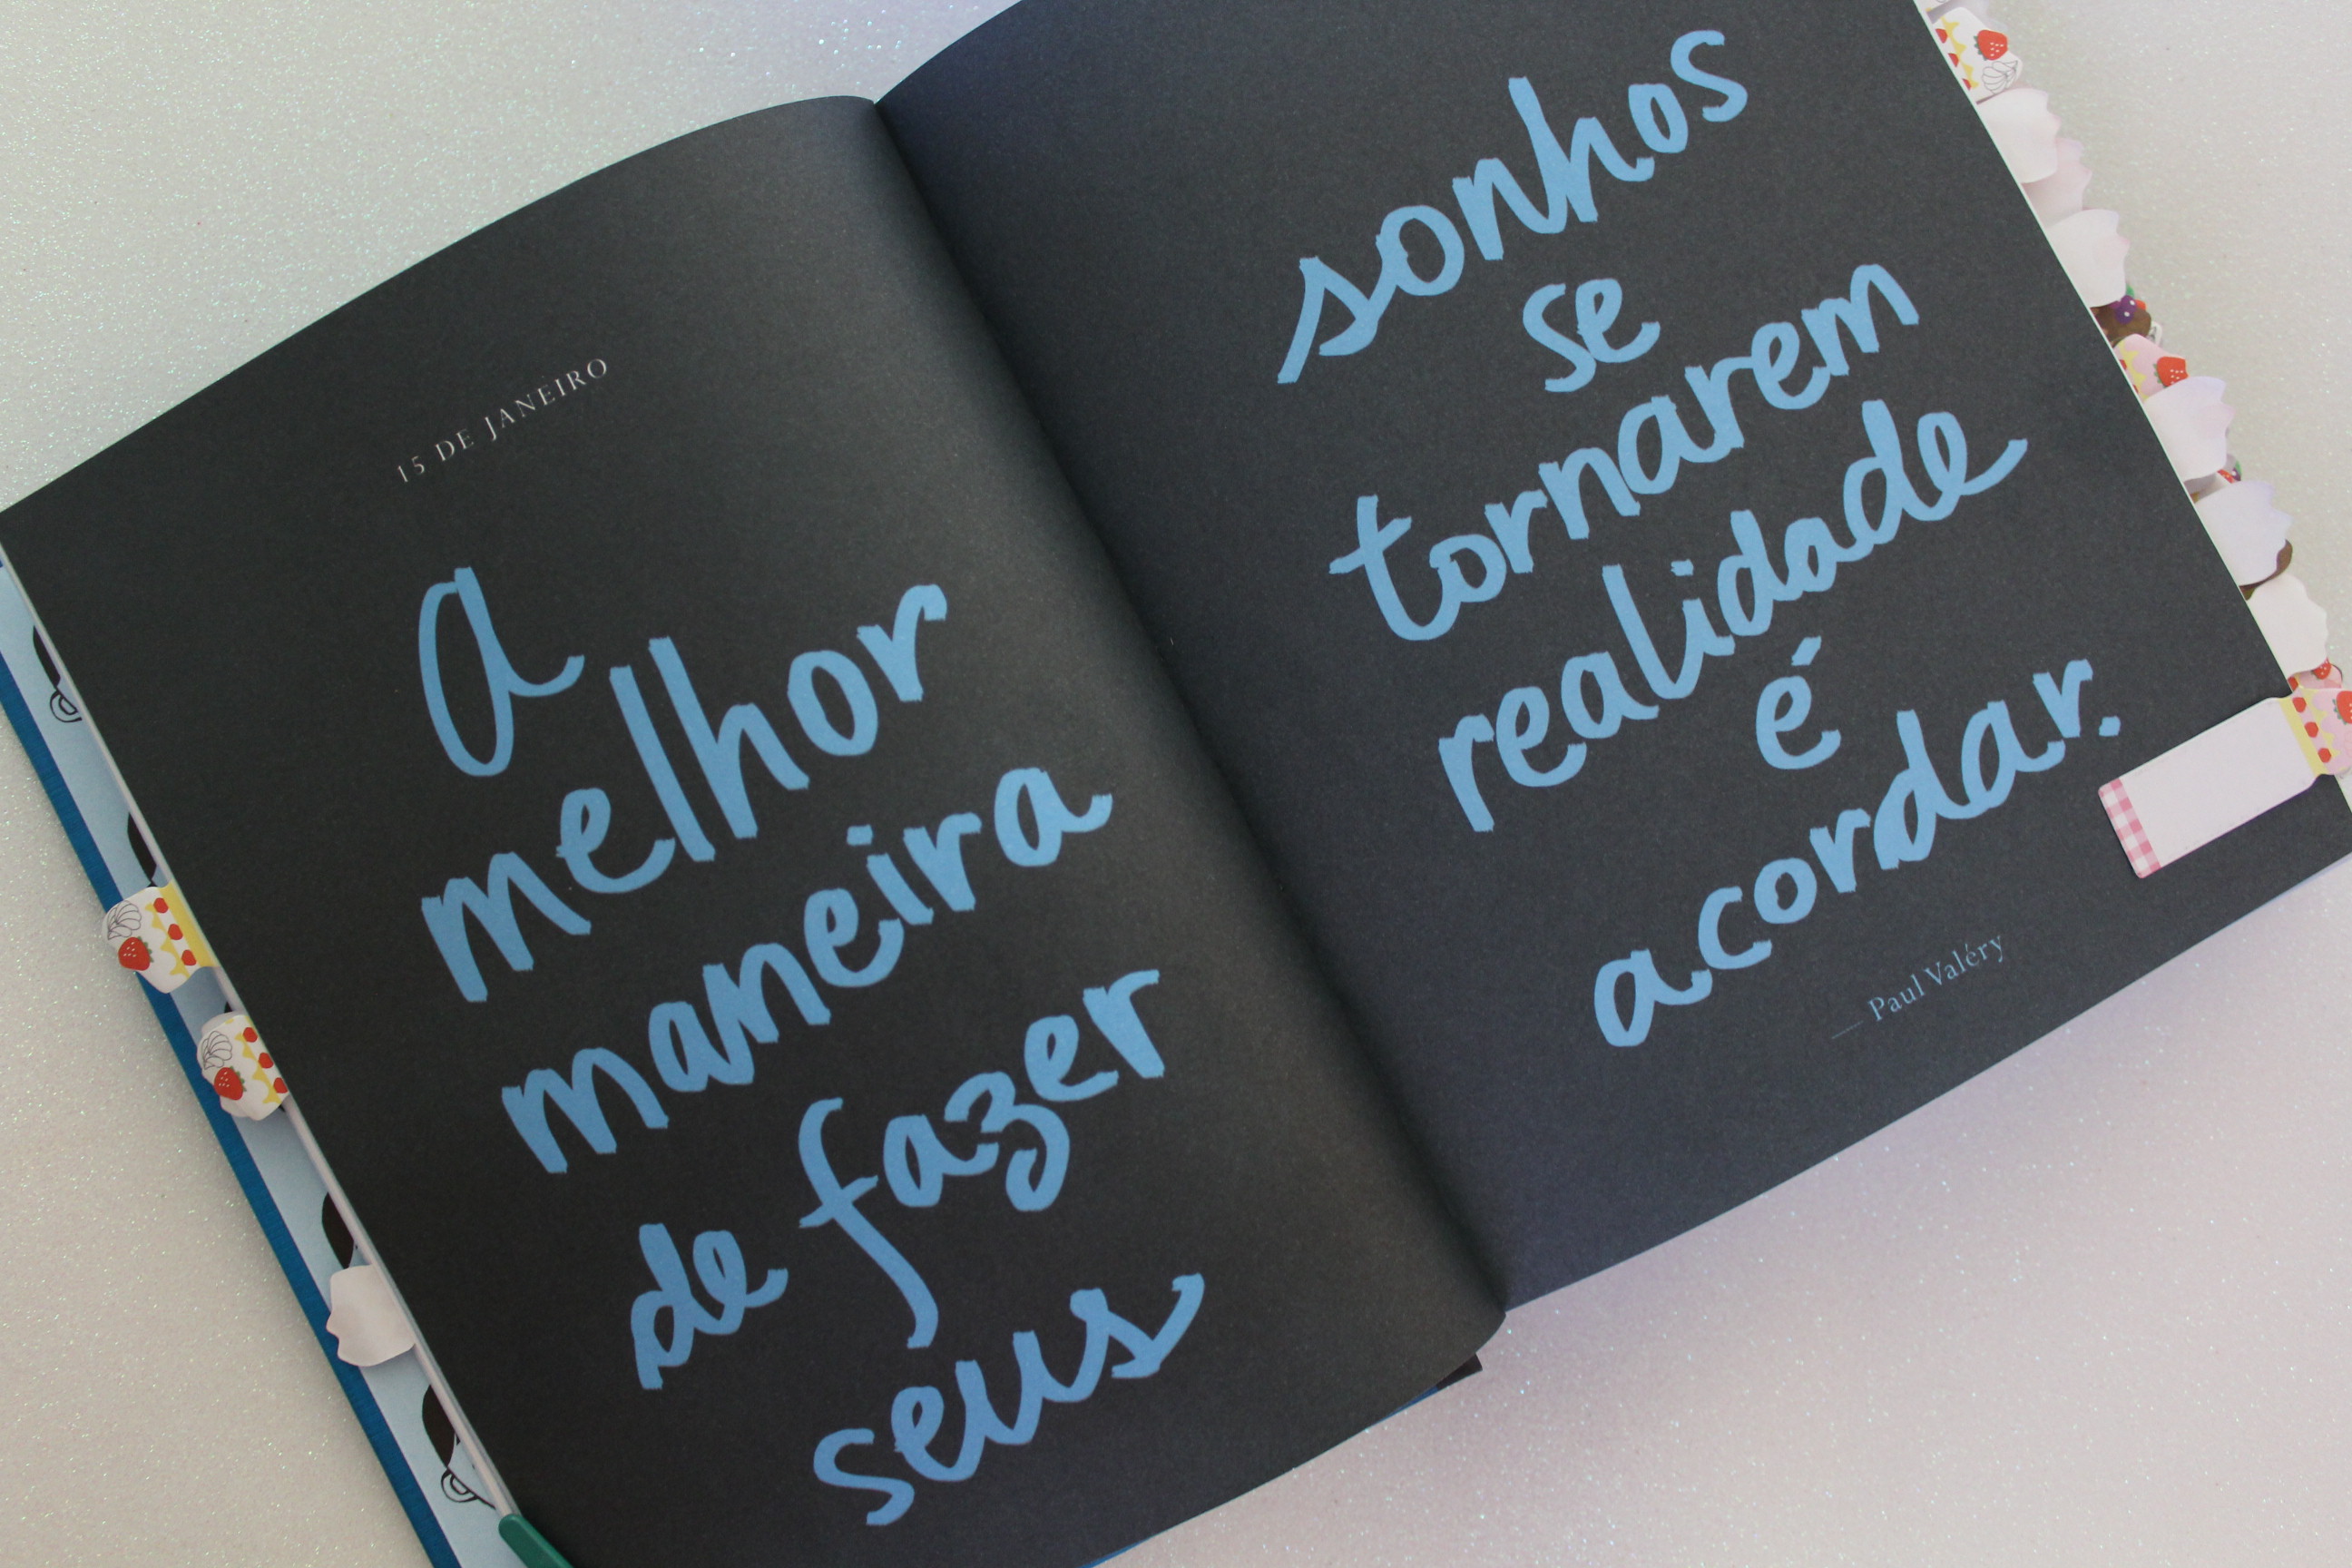 15 DE JANEIRO
A
melhor
maneira
de fazer
seus
sonhos
se
tornarem
realidade
é
acordar.
— Paul Valéry